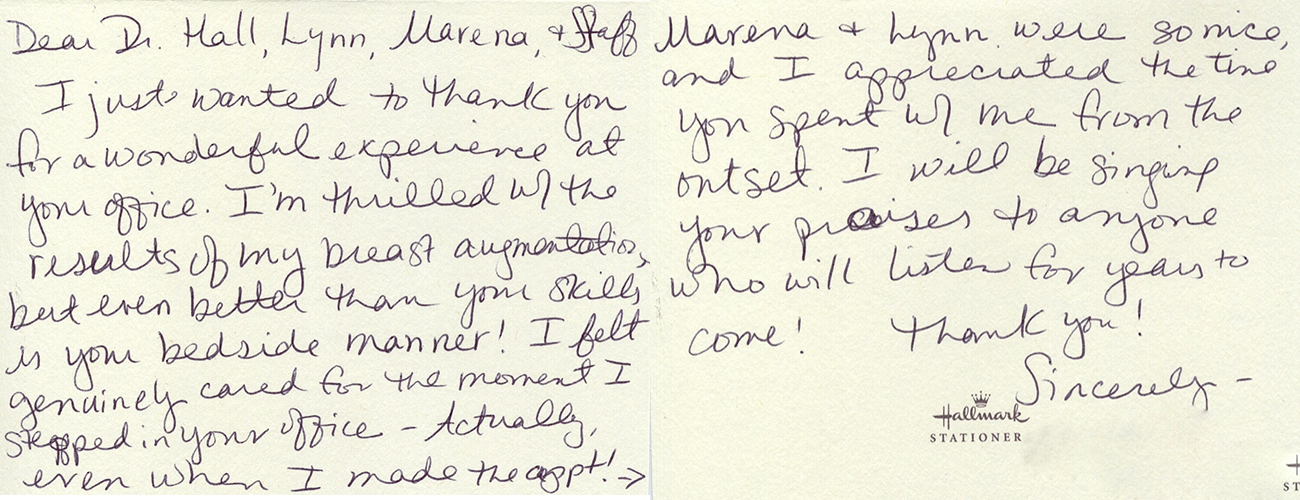 Dear Dr. Hall, Lynn, Marena, & Staff
I just wanted to thank you
for a wonderful experience at
your office. I'm thrilled w/ the
results of my breast augmentation,
but even better than your skills
is your bedside manner! I felt
genuinely cared for the moment I
stepped in your office - Actually,
even when I made the appt! →
Marena & Lynn were so nice,
and I appreciated the time
you spent w/ me from the
outset. I will be singing
your praises to anyone
who will listen for years to
come! Thank you!
Sincerely -
Hallmark
STATIONER
ST